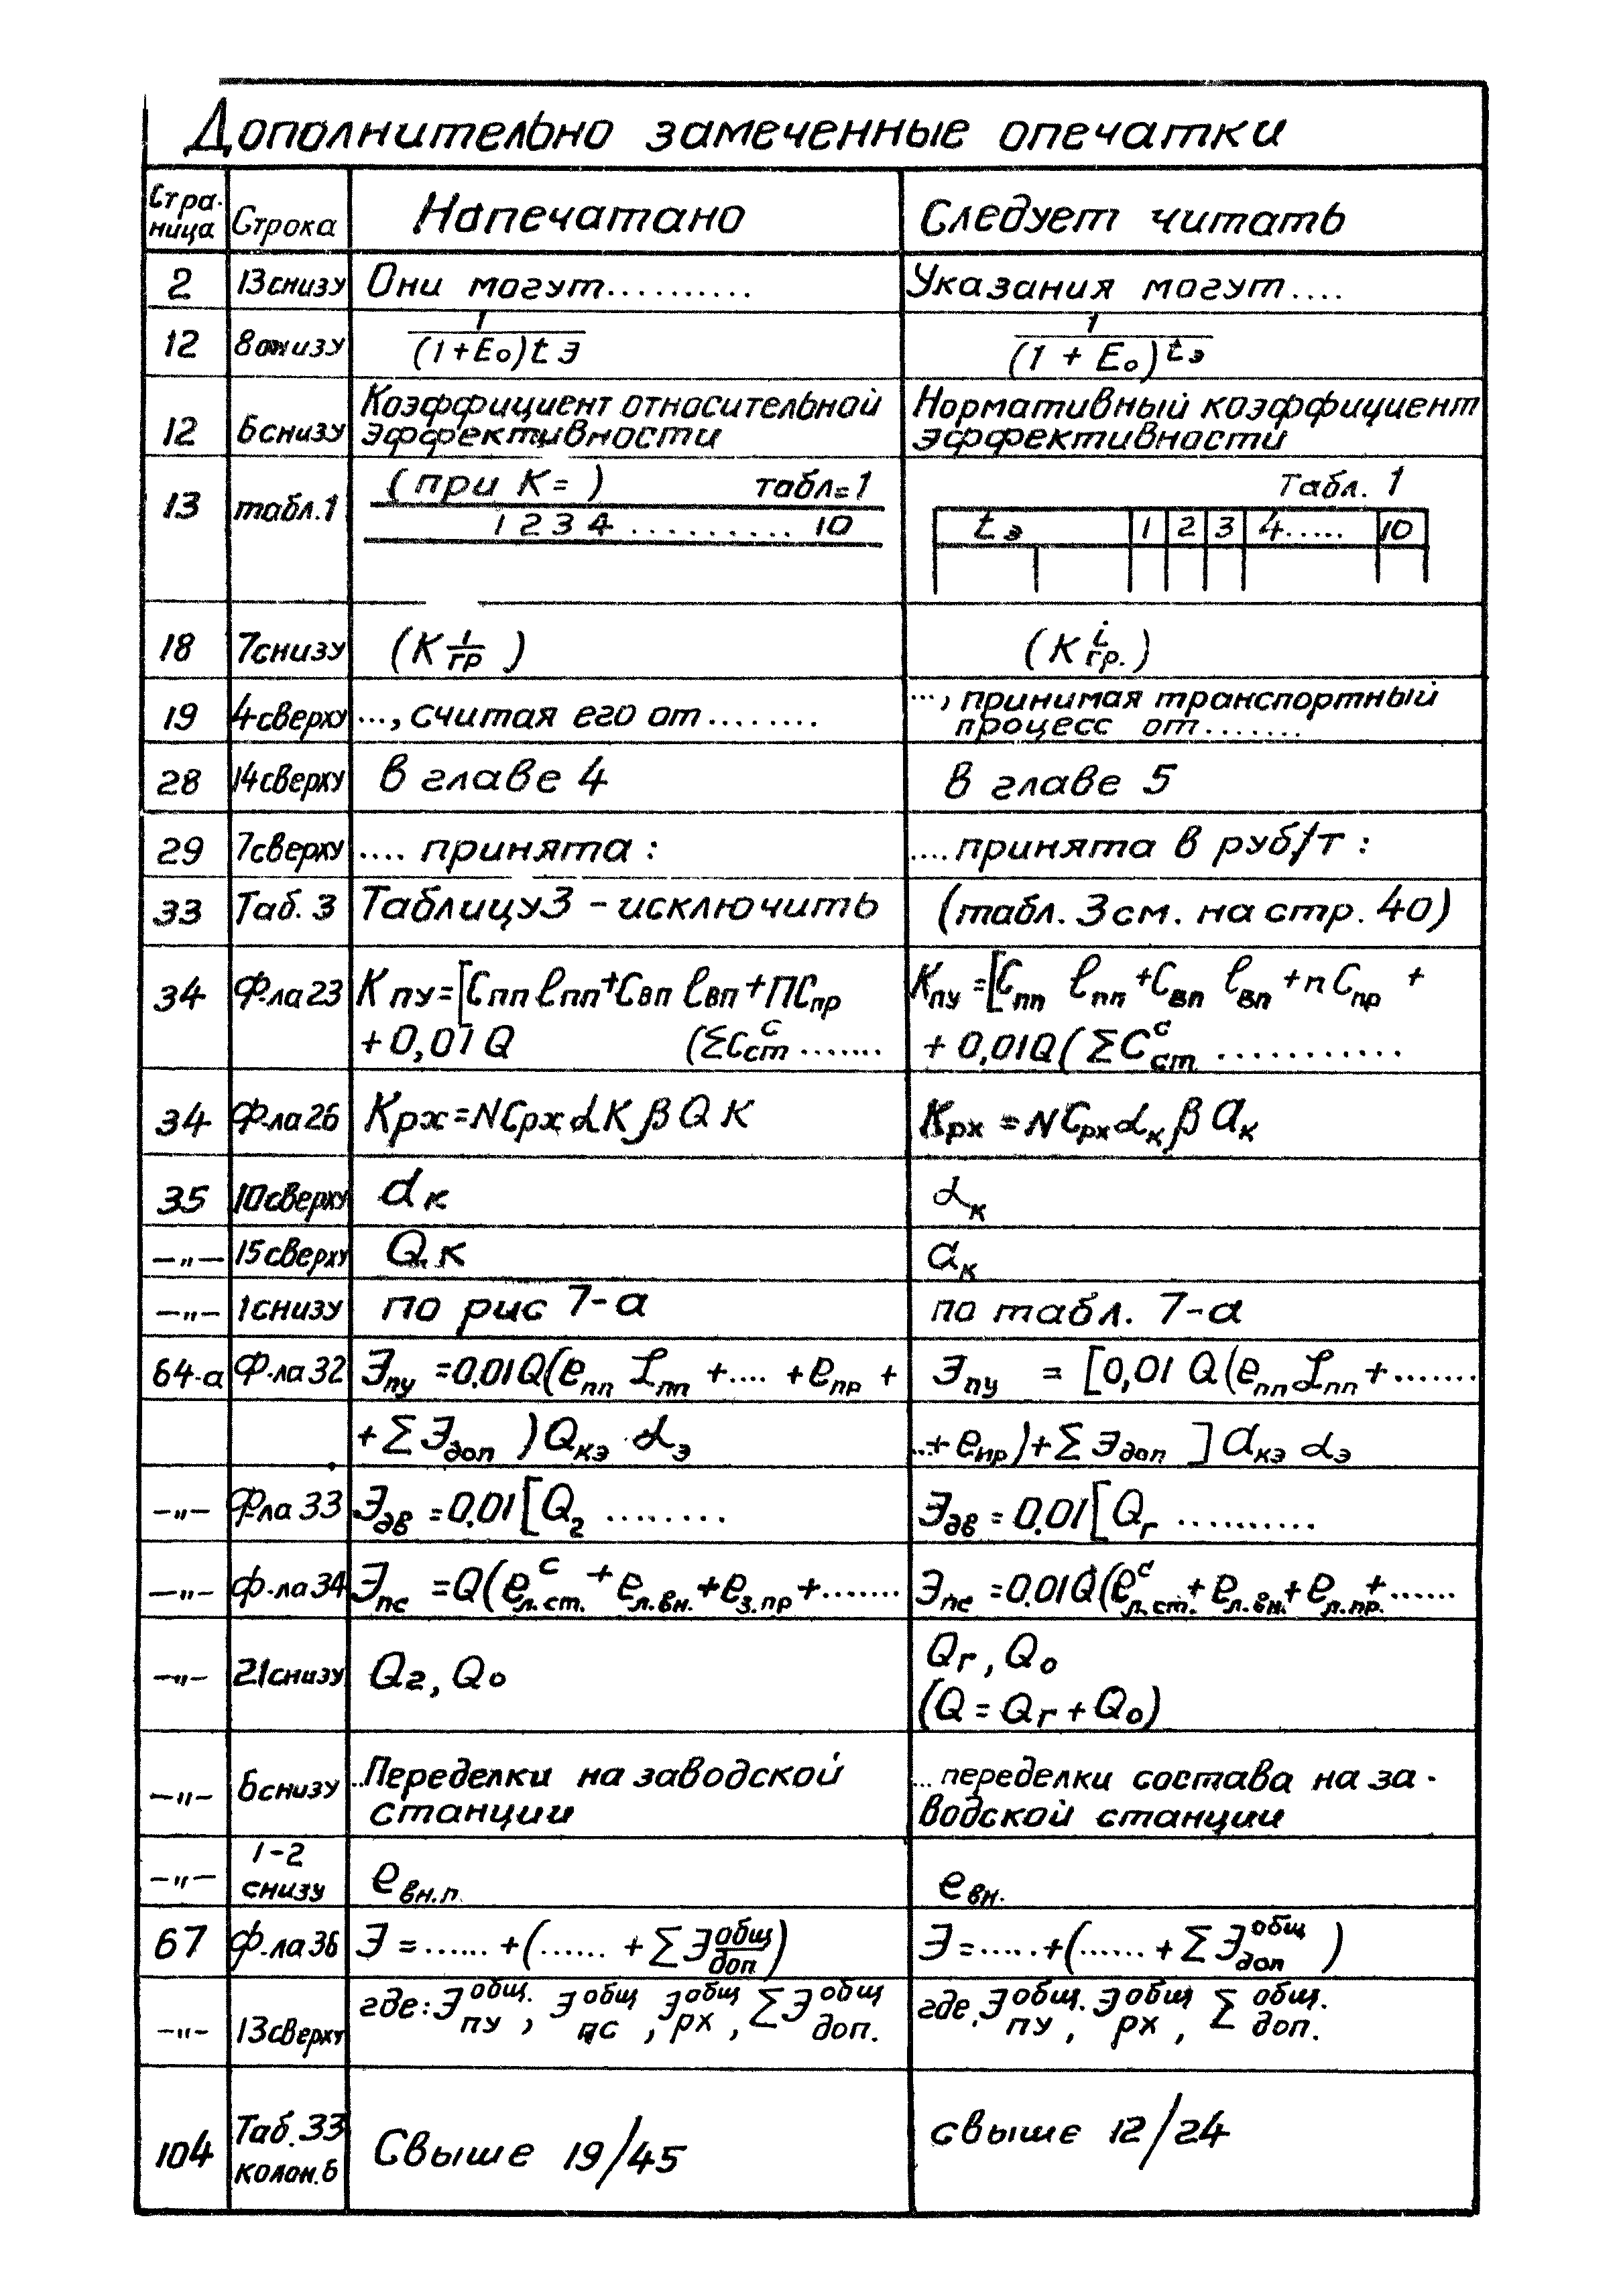 Дополнительно замеченные опечатки
Стра-
ница Строка Напечатано Следует читать
2 13 снизу Они могут.......... Указания могут....
12 8 снизу 1/(1+E₀)tэ 1/(1 + E₀)^tэ
12 6 снизу Коэффициент относительной
эффективности Нормативный коэффициент
эффективности
13 табл.1 (при К= ) табл=1 Табл. 1
1 2 3 4 .......... 10 tэ 1 2 3 4..... 10
18 7 снизу (К 1/гр ) (К i гр.)
19 4 сверху ..., считая его от........ ..., принимая транспортный
процесс от.......
28 14 сверху в главе 4 в главе 5
29 7 сверху .... принята: ....принята в руб/т:
33 Таб. 3 Таблицу 3 - исключить (табл. 3 см. на стр. 40)
34 Ф-ла 23 К пу=[Cпп ℓпп+Cвп ℓвп+ПCпр Kпу=[Cпп ℓпп+Cвп ℓвп+nCпр +
+0,01Q (ΣCст^с ....... +0,01Q(ΣCст^с ...........
34 Ф-ла 26 Крж=NCрж αК βQ К Крх =NCрх αк β aк
35 10 сверху d к αк
-„- 15 сверху Q.к aк
-„- 1 снизу по рис 7-а по табл. 7-а
64-а Ф-ла 32 Эпу =0.01Q(eпп ℒпп +.... +eпр + Эпу = [0,01 Q(eпп ℒпп+.......
+ΣЭдоп )Qкэ αэ ...+eпр)+ΣЭдоп ]aкэ αэ
-„- Ф-ла 33 Эдв =0.01[Q₂ ........ Эдв =0.01[Qг ..........
-„- ф-ла 34 Эпс =Q(e^с л.ст.+eл.вн.+eз.пр+....... Эпс =0.01Q(e^с л.ст.+eл.вн.+eл.пр.+......
-„- 21 снизу Q₂, Qо Qг, Qо
(Q=Qг+Qо)
-„- 6 снизу ..Переделки на заводской
станции ...переделки состава на за-
водской станции
-„- 1-2
снизу eвн.п. eвн.
67 Ф-ла 36 Э =......+(......+ΣЭ общ/доп) Э=......+(......+ΣЭ общ доп )
-„- 13 сверху где: Э общ. пу, Э общ пс, Э общ рх, ΣЭ общ доп. где, Э общ. пу, Э общ рх, Σ общ. доп.
104 Таб. 33
колон.6 Свыше 19/45 свыше 12/24